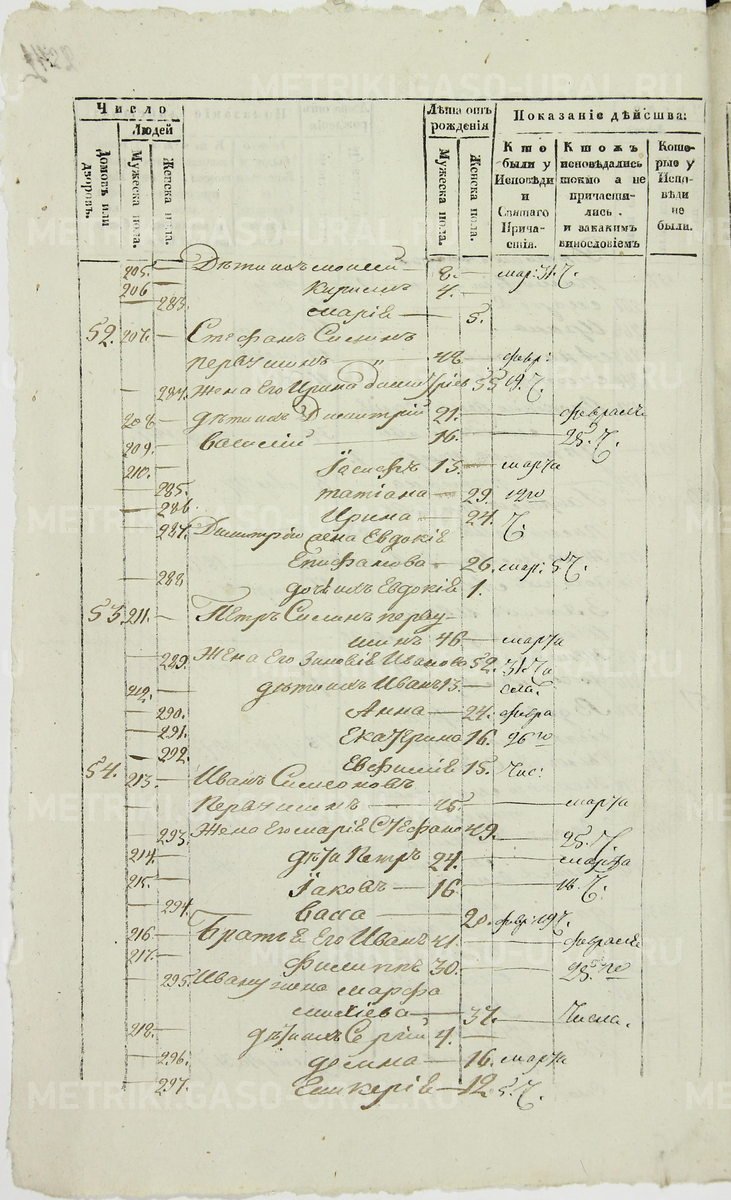 Число
Людей
Домовъ или дворовъ.
Мужеска пола.
Женска пола.
Лѣта отъ рожденія
Мужеска пола.
Женска пола.
Показаніе дѣйства:
Кто были у Исповѣди и Святаго Причастія.
Ктожъ исповѣдались токмо а не причастились. и закакимъ винословіемъ
Которые у Исповѣди не были.
205. Дѣти ихъ 8. мар: 31. Ч.
206 4.
283. марія 5.
52. 207. Стефанъ Силинъ
первушинъ 48 февр:
284. Жена Его Ирина 55 19. Ч.
208 дѣти ихъ Димитрій 21. февраля
209. Василій 16. 25. Ч.
210. Іосифъ 13. марта
285. татіана 29. 12го
286 Ирина 24. Ч.
287. Димитрію жена Евдокія
Епифанова 26. мар: 5 Ч.
288 дочь ихъ Евдокія 1.
53 211. Петръ Силинъ перву-
шинъ 46 марта
289. Жена Его Зиновія Иванова 52. 31. Чи
212. дѣти ихъ Иванъ 13. сла:
290. Анна 24. февра
291. Екатерина 16. 26го
292. Евфимія 15. Чис:
54. 213. Иванъ Симеоновъ
Первушинъ 45. марта
293. Жена Его марія Стефано 49. 25. Ч.
214. дѣти Петръ 24. марта
215. Іаковъ 16 18. Ч.
294. Васса 20. февр: 19 Ч.
216. Братія Его Иванъ 41. февраля
217. Филиппъ 30. 25го
295. Ивану жена марфа
37. Числа.
218. дѣти ихъ Сергій 4.
296. домна 16. марта
297. Гликерія 12. 5. Ч.
METRIKI.GASO-URAL.RU